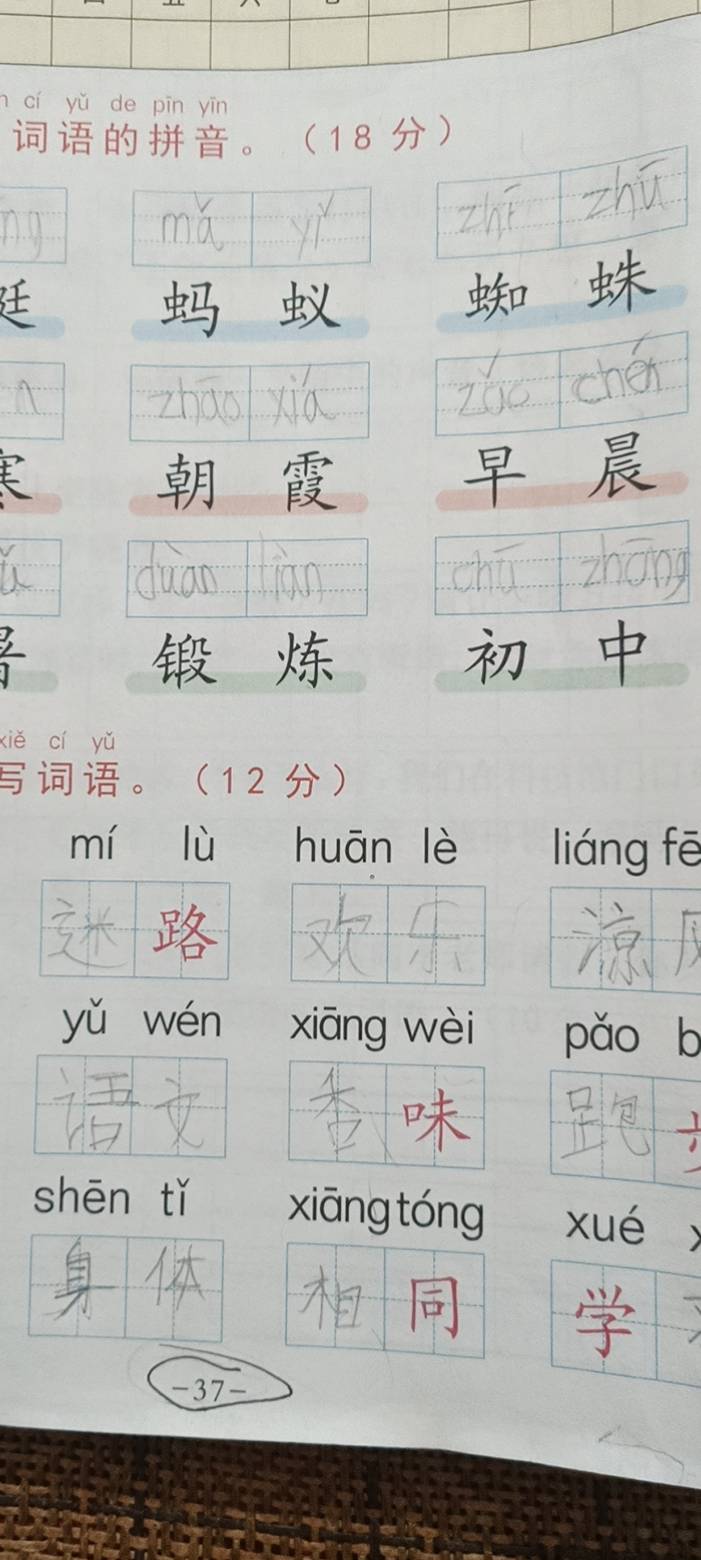 cí yǔ de pīn yīn
词语的拼音。（18 分）
ng mǎ yǐ zhī zhū
蜓 蚂 蚁 蜘 蛛
n zhāo xiá zǎo chén
寒 朝 霞 早 晨
duàn liàn chū zhōng
锻 炼 初 中
xiě cí yǔ
写词语。（12 分）
mí lù huān lè liáng fē
迷 路 欢 乐 凉
yǔ wén xiāng wèi pǎo b
语 文 香 味 跑 步
shēn tǐ xiāng tóng xué
身 体 相 同 学
-37-